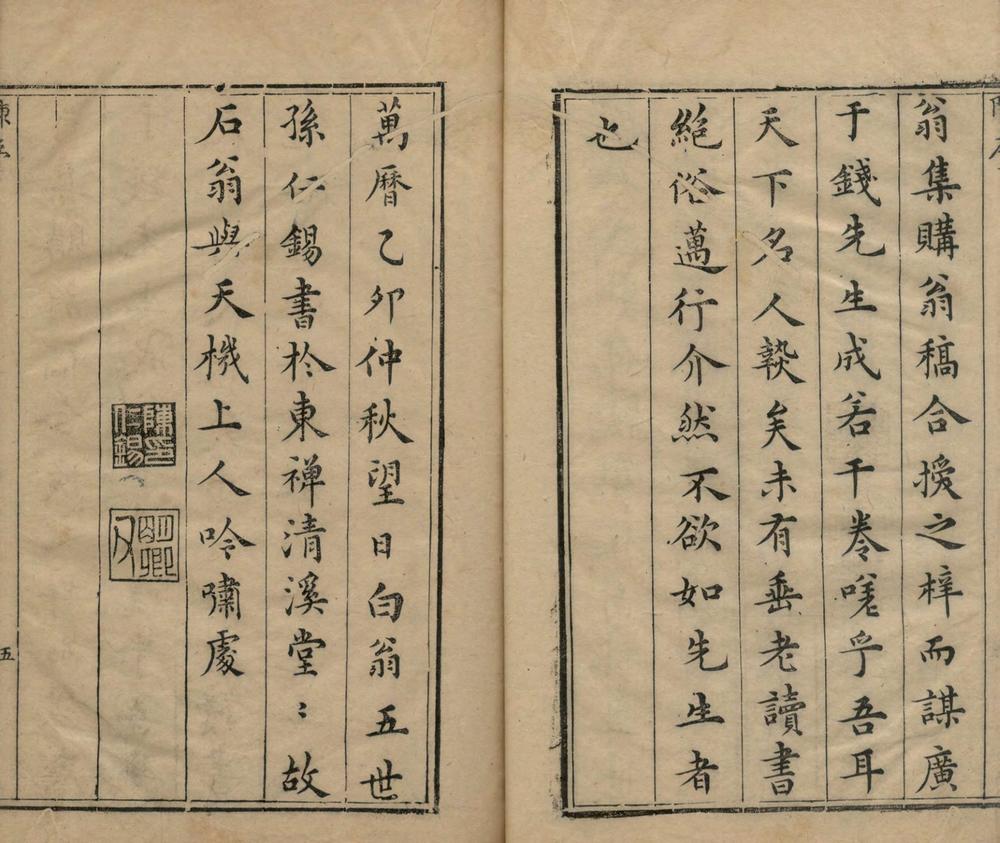 翁集購翁稿合授之梓而謀廣
于錢先生成若干卷嗟乎吾耳
天下名人孰矣未有垂老讀書
絕俗邁行介然不欲如先生者
也
萬曆乙卯仲秋望日白翁五世
孫仁錫書於東禪清溪堂〻故
石翁與天機上人吟嘯處
陳印仁錫
明卿父
五